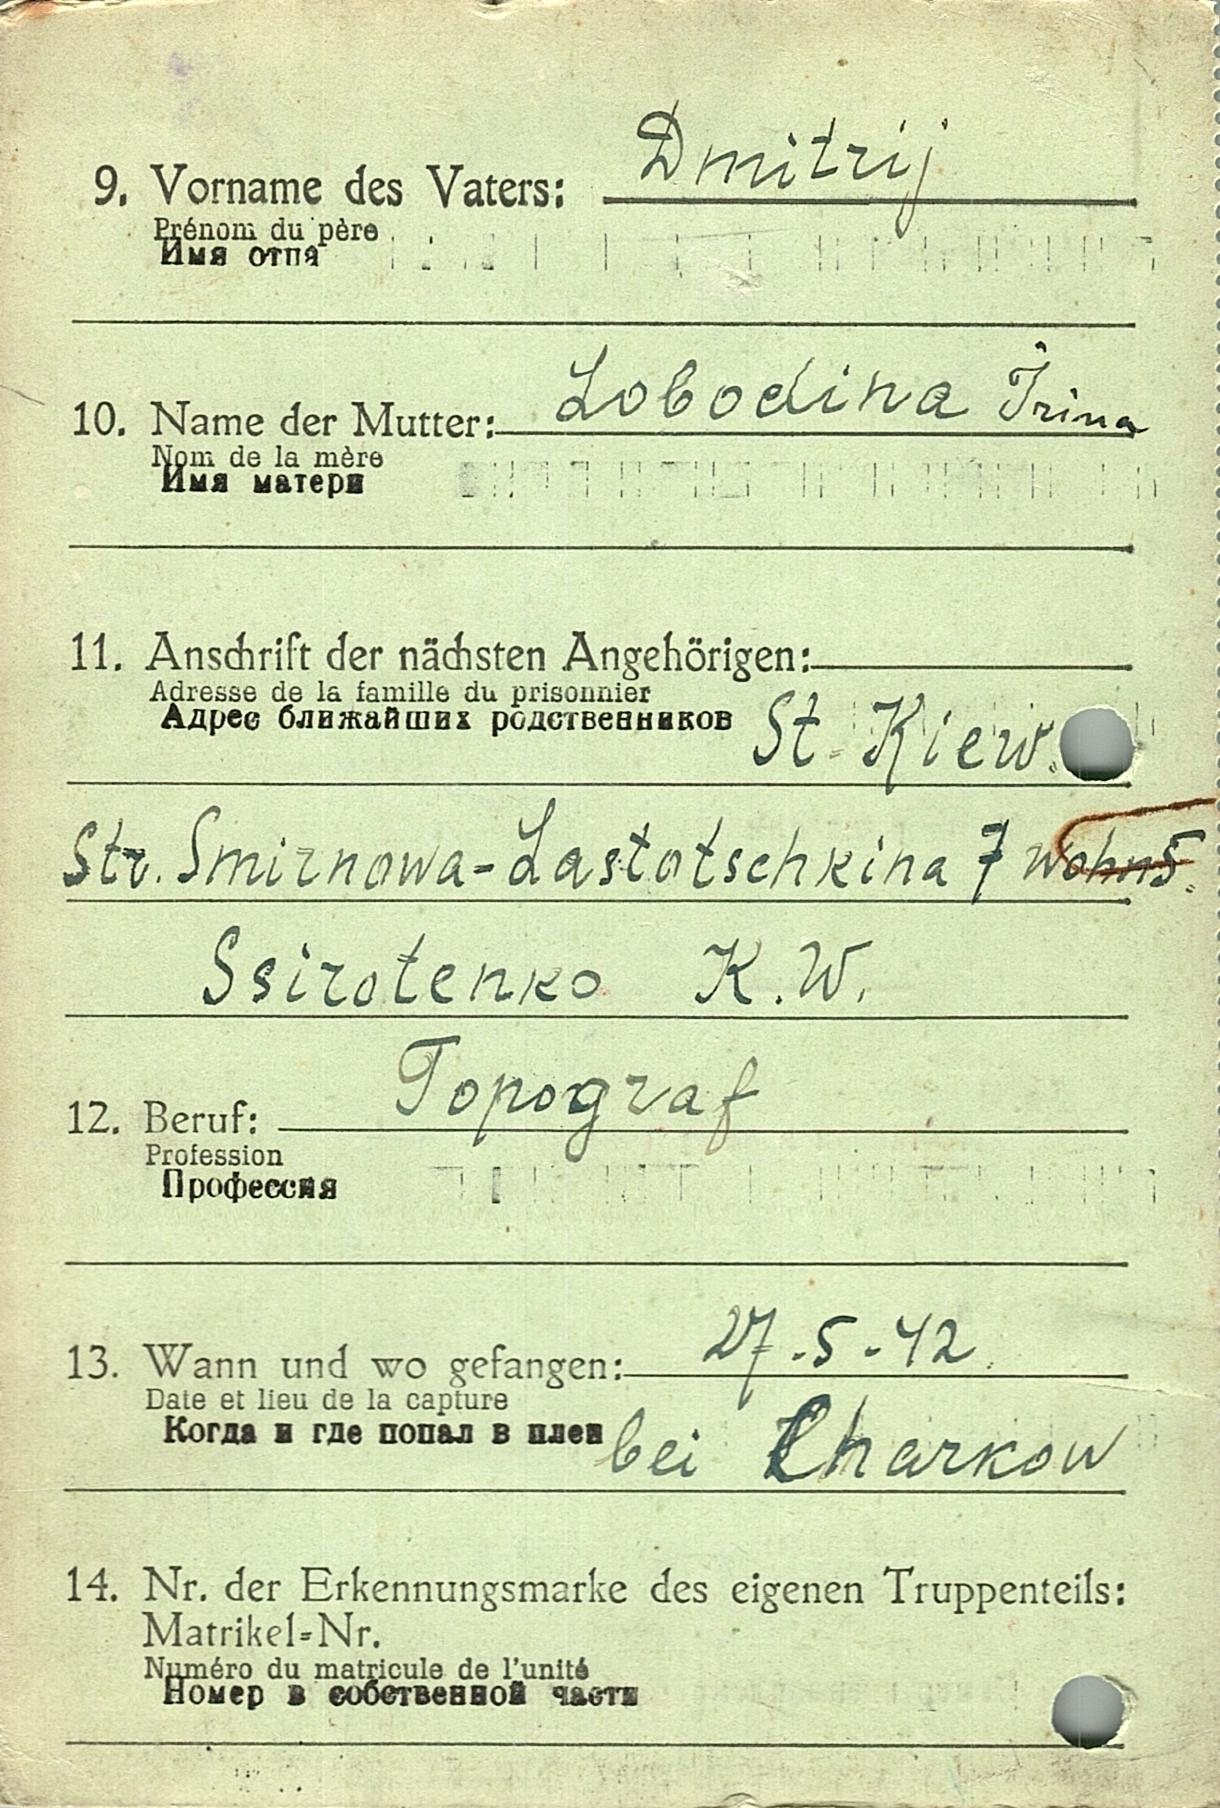 9. Vorname des Vaters: Dmitrij
Prénom du père
Имя отца
10. Name der Mutter: Lobodina Irina
Nom de la mère
Имя матери
11. Anschrift der nächsten Angehörigen:
Adresse de la famille du prisonnier
Адрес ближайших родственников St. Kiew.
Str. Smirnowa-Lastotschkina 7 wohn 5.
Ssirotenko K. W.
12. Beruf: Topograf
Profession
Профессия
13. Wann und wo gefangen: 27.5.42
Date et lieu de la capture
Когда и где попал в плен bei Charkow
14. Nr. der Erkennungsmarke des eigenen Truppenteils:
Matrikel=Nr.
Numéro du matricule de l'unité
Номер в собственной части